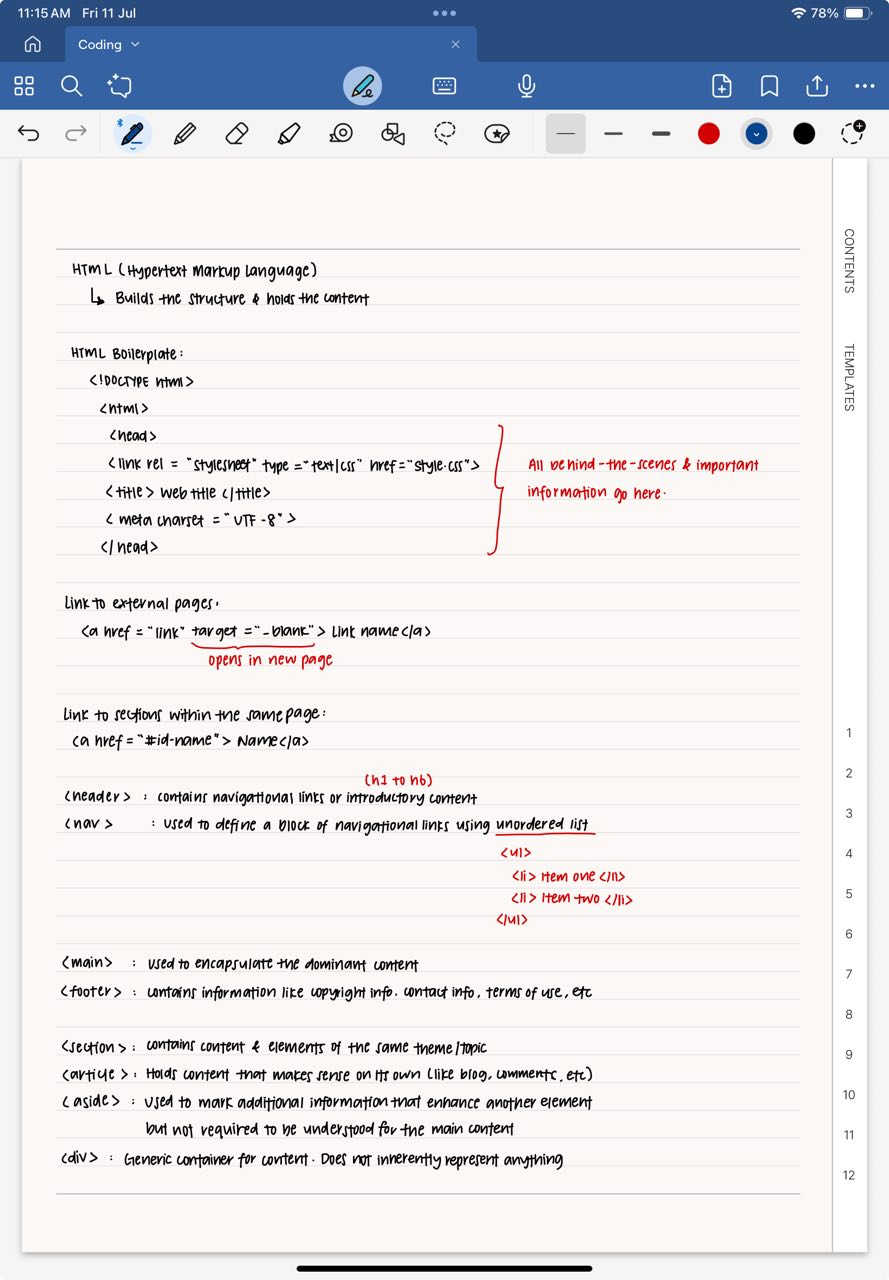 11:15 AM Fri 11 Jul
78%
Coding
CONTENTS
TEMPLATES
HTML (Hypertext Markup Language)
↳ Builds the structure & holds the content
HTML Boilerplate:
<!DOCTYPE html>
<html>
<head>
<link rel = "stylesheet" type = "text/css" href = "style.css">
<title> Web title </title>
<meta charset = "UTF-8">
</head>
All behind-the-scenes & important
information go here.
Link to external pages:
<a href = "link" target = "_blank"> Link name </a>
opens in new page
Link to sections within the same page:
<a href = "#id-name"> Name </a>
(h1 to h6)
<header> : contains navigational links or introductory content
<nav> : used to define a block of navigational links using unordered list
<ul>
<li> Item one </li>
<li> Item two </li>
</ul>
<main> : used to encapsulate the dominant content
<footer> : contains information like copyright info, contact info, terms of use, etc
<section> : contains content & elements of the same theme/topic
<article> : Holds content that makes sense on its own (like blog, comments, etc)
<aside> : used to mark additional information that enhance another element
but not required to be understood for the main content
<div> : Generic container for content. Does not inherently represent anything
1
2
3
4
5
6
7
8
9
10
11
12